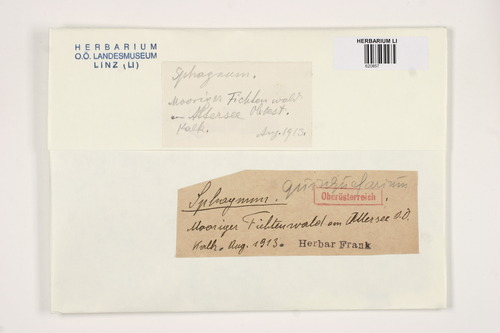 HERBARIUM
O.Ö. LANDESMUSEUM
LINZ (LI)
HERBARIUM LI
Sphagnum.
Mooriger Fichtenwald
am Attersee
Kalk. Aug. 1913.
Sphagnum. quinquefarium
Oberösterreich
Mooriger Fichtenwald am Attersee O.Ö.
Kalk. Aug. 1913. Herbar Frank